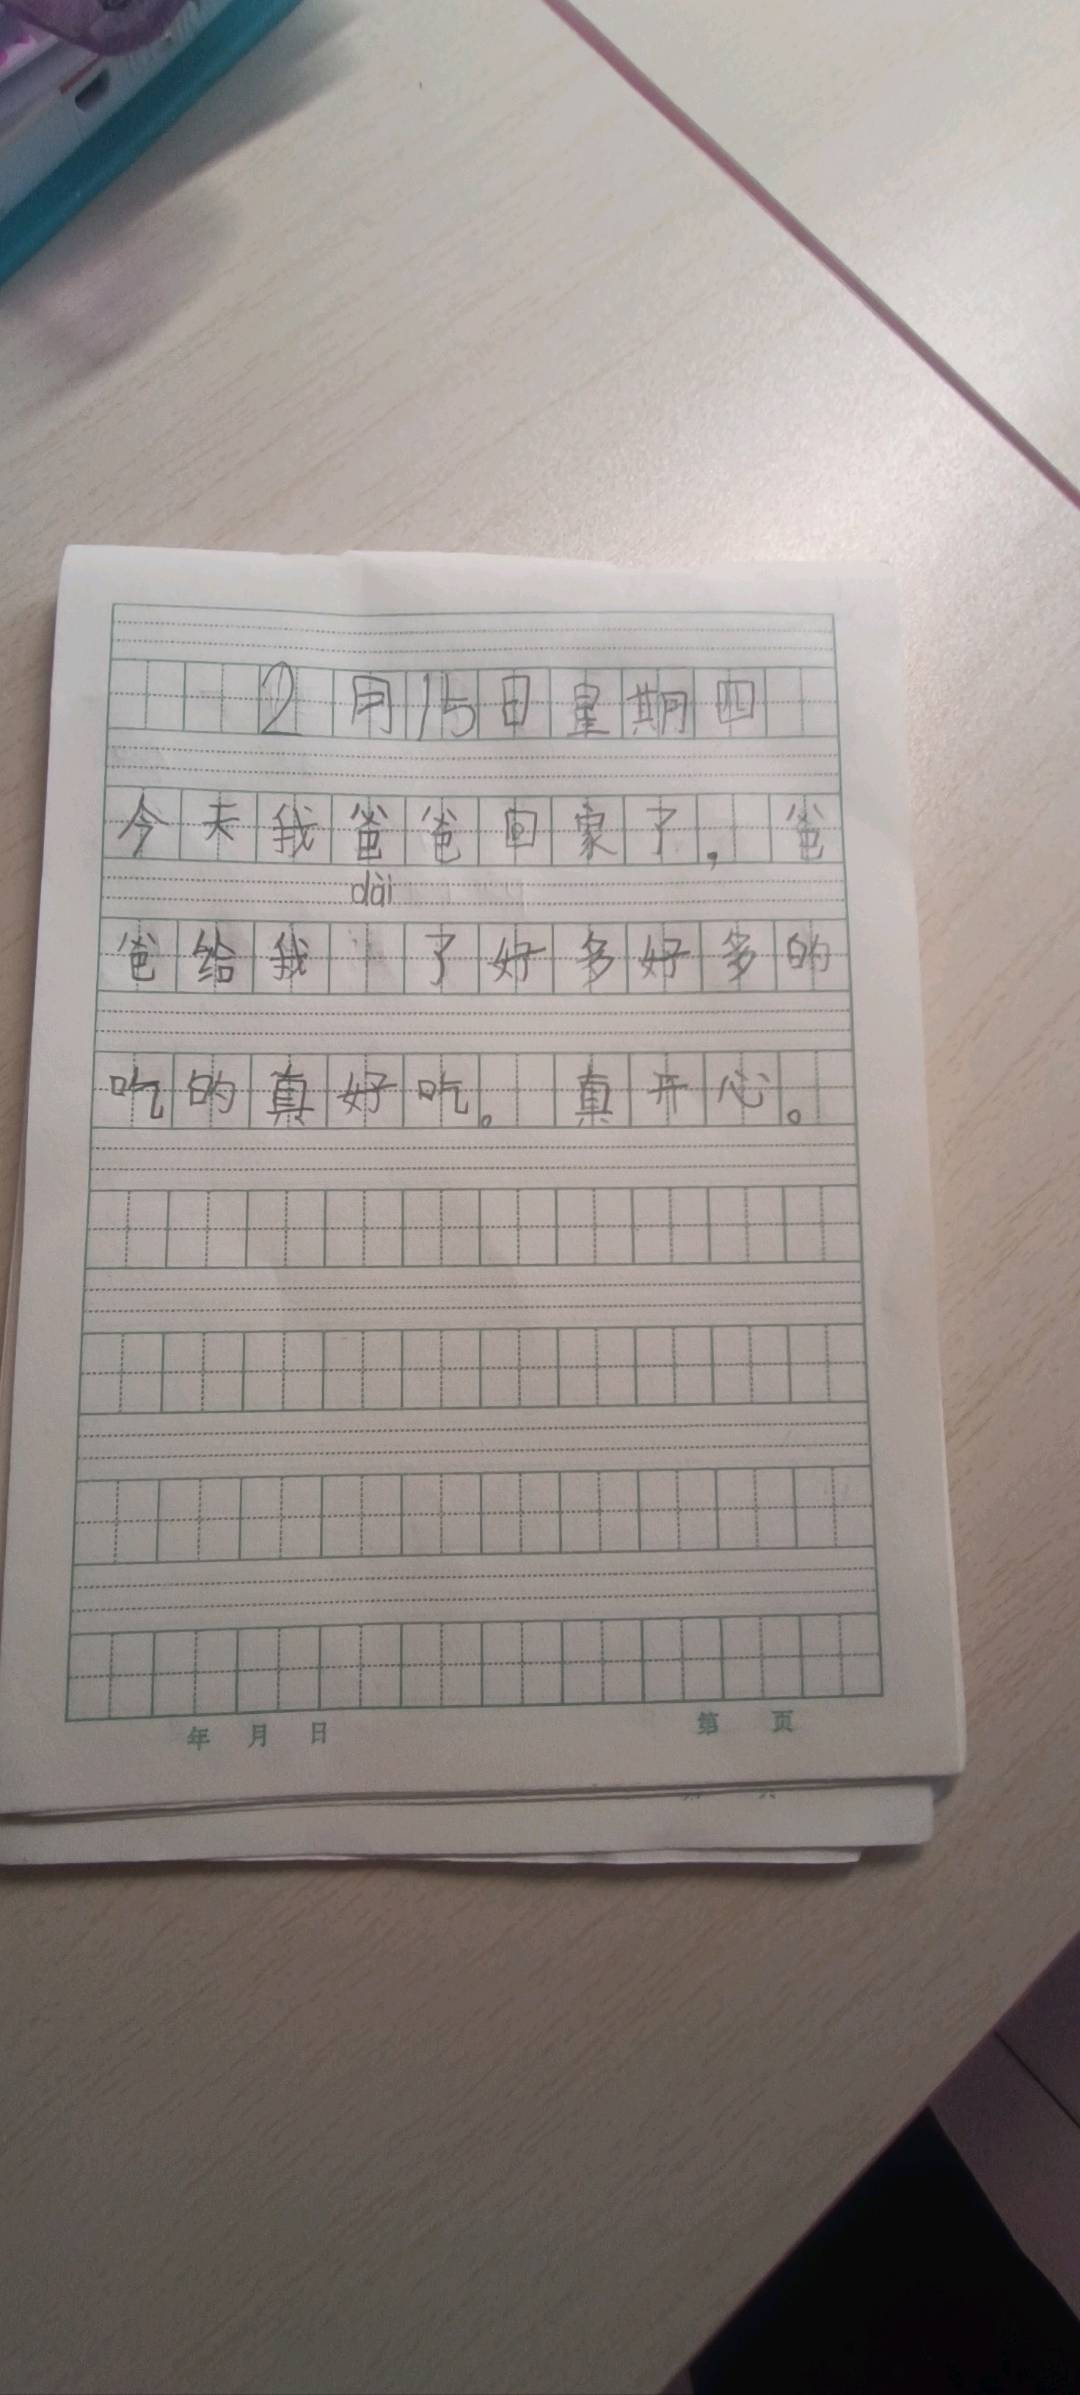 2月15日星期四
今天我爸爸回家了，爸
dài
爸给我 了好多好多的
吃的真好吃。真开心。
年 月 日 第 页